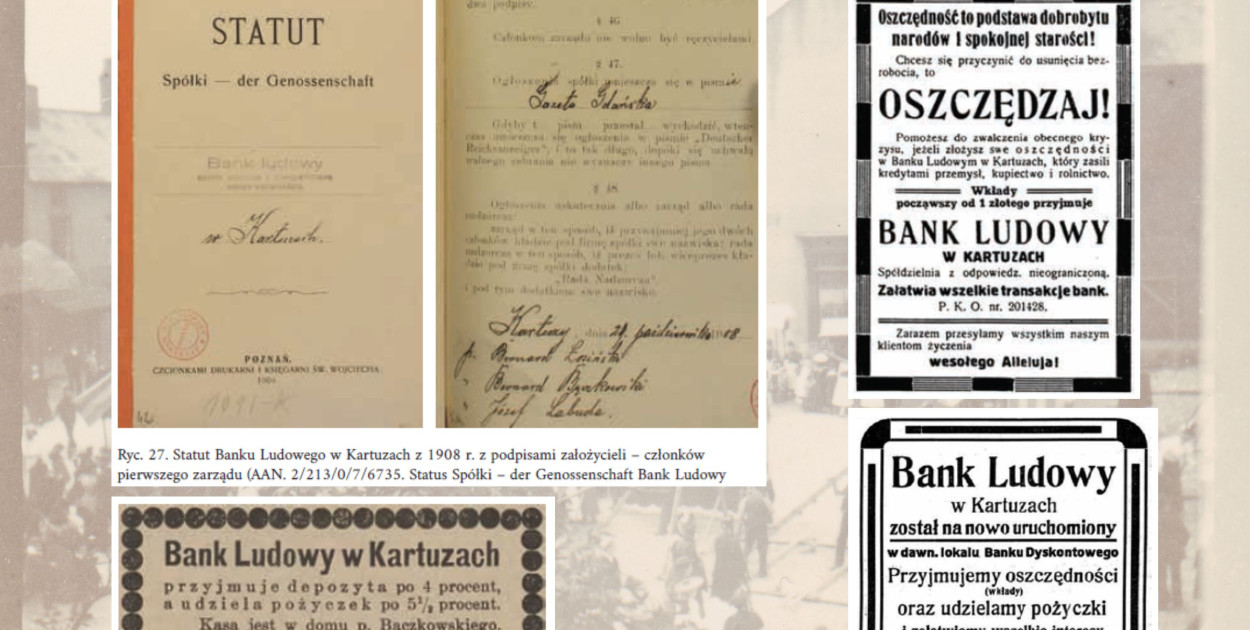 STATUT
Spółki — der Genossenschaft
Bank ludowy
w Kartuzach.
POZNAŃ.
CZCIONKAMI DRUKARNI I KSIĘGARNI ŚW. WOJCIECHA
1091-K
dwa podpisy.
§ 46.
Członkom zarządu nie wolno być ręczycielami
§ 47.
Ogłoszenia spółki umieszcza się w piśmie
Gazeta Gdańska
Gdyby t. pism przestał wychodzić, wten-
czas umieszcza się ogłoszenia w piśmie „Deutscher
Reichsanzeiger", i to tak długo, dopóki się uchwałą
walnego zebrania nie wyznaczy innego pisma.
§ 48.
Ogłoszenia uskutecznia albo zarząd albo rada
nadzorcza:
zarząd w ten sposób, iż przynajmniej jego dwóch
członków kładzie pod firmę spółki swe nazwiska; rada
nadzorcza w ten sposób, iż prezes lub wiceprezes kła-
dzie pod firmę spółki dodatek:
„Rada Nadzorcza"
i pod tym dodatkiem swe nazwisko.
Kartuzy, dnia 29. października 1908
Bernard Łosiński
Bernard
Józef Labuda.
Ryc. 27. Statut Banku Ludowego w Kartuzach z 1908 r. z podpisami założycieli – członków
pierwszego zarządu (AAN. 2/213/0/7/6735. Status Spółki – der Genossenschaft Bank Ludowy
Bank Ludowy w Kartuzach
przyjmuje depozyta po 4 procent,
a udziela pożyczek po 5½ procent.
Kasa jest w domu p. Bączkowskiego,
Oszczędność to podstawa dobrobytu
narodów i spokojnej starości!
Chcesz się przyczynić do usunięcia bez-
robocia, to
OSZCZĘDZAJ!
Pomożesz do zwalczenia obecnego kry-
zysu, jeżeli złożysz swe oszczędności
w Banku Ludowym w Kartuzach, który zasili
kredytami przemysł, kupiectwo i rolnictwo.
Wkłady
począwszy od 1 złotego przyjmuje
BANK LUDOWY
W KARTUZACH
Spółdzielnia z odpowiedz. nieograniczoną.
Załatwia wszelkie transakcje bank.
P. K. O. nr. 201428.
Zarazem przesyłamy wszystkim naszym
klientom życzenia
wesołego Alleluja!
Bank Ludowy
w Kartuzach
został na nowo uruchomiony
w dawn. lokalu Banku Dyskontowego
Przyjmujemy oszczędności
(wkłady)
oraz udzielamy pożyczki
i załatwiamy wszelkie interesy